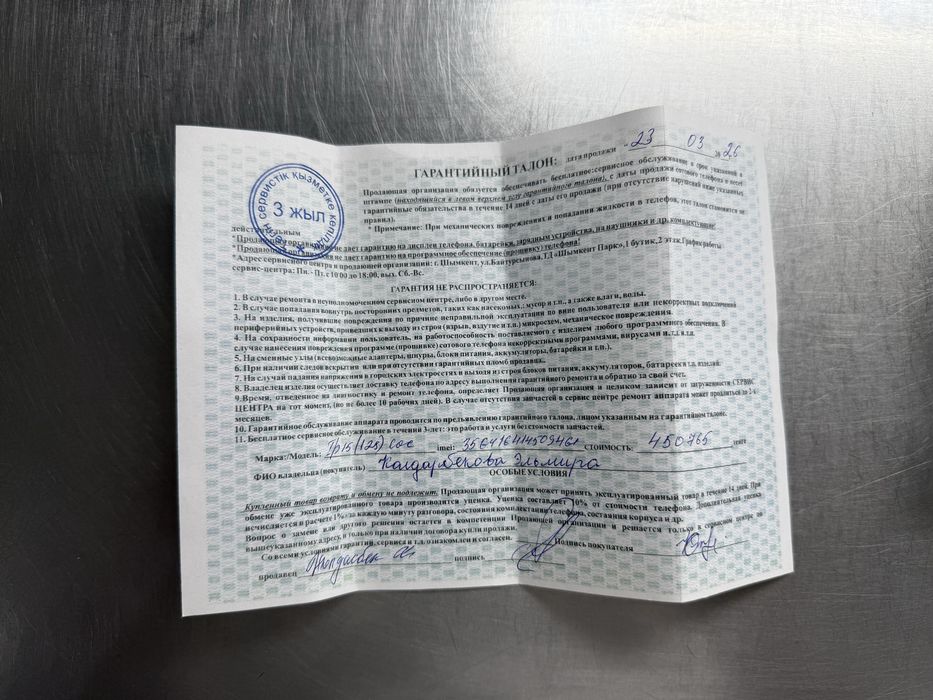 ГАРАНТИЙНЫЙ ТАЛОН: дата продажи 23 03 2026
сервистік қызметке кепілдік
3 ЖЫЛ
Продающая организация обязуется обеспечивать бесплатное: сервисное обслуживание в срок указанный в
штампе (находящийся в левом верхнем углу гарантийного талона), с даты продажи сотового телефона и несет
гарантийные обязательства в течение 14 дней с даты его продажи (при отсутствие нарушений ниже указанных
правил).
* Примечание: При механических повреждениях и попадании жидкости в телефон, этот талон становится не
действительным
*Продающая организация не дает гарантию на дисплей телефона, батарейки, зарядные устройства, на наушники и др. комплектующие!
*Продающая организация не дает гарантию на программное обеспечение (прошивку) телефона!
*Адрес сервисного центра и продающей организации: г. Шымкент, ул.Байтурсынова, ТД «Шымкент Парк»,1 бутик, 2 этаж. График работы
сервис-центра: Пн.- Пт. с 10:00 до 18:00, вых. Сб.-Вс.
ГАРАНТИЯ НЕ РАСПРОСТРАНЯЕТСЯ:
1. В случае ремонта в неуполномоченном сервисном центре, либо в другом месте.
2. В случае попадания вовнутрь посторонних предметов, таких как насекомых.: мусор и т.п., а также влаги, воды.
3. На изделия, получившие повреждения по причине неправильной эксплуатации по вине пользователя или некорректных подключений
периферийных устройств, приведших к выходу из строя (взрыв, вздутие и т.п.) микросхем, механическое повреждения.
4. На сохранности информации пользователь, на работоспособность поставляемого с изделием любого программного обеспечения. В
случае нанесения повреждения программе (прошивке) сотового телефона некорректными программами, вирусами и.т.д и.тп.
5. На сменные узлы (всевозможные адаптеры, шнуры, блоки питания, аккумуляторы, батарейки и т.п.).
6. При наличии следов вскрытия или при отсутствии гарантийных пломб продавца.
7. На случай падания напряжения в городских электросетях и выхода из строя блоков питания, аккумуляторов, батареек и т.п. изделий.
8. Владелец изделия осуществляет доставку телефона по адресу выполнения гарантийного ремонта и обратно за свой счет.
9.Время, отведенное на диагностику и ремонт телефона, определяет Продающая организация и целиком зависит от загруженности СЕРВИС
ЦЕНТРА на тот момент, (но не более 10 рабочих дней). В случае отсутствия запчастей в сервис центре ремонт аппарата может продлиться до 2-х
месяцев.
10. Гарантийное обслуживание аппарата проводится по предъявлению гарантийного талона, лицом указанным на гарантийном талоне.
11. Бесплатное сервисное обслуживание в течений 3-лет: это работа и услуги без стоимости запчастей.
Марка:/Модель: Ip15(128) imei: СТОИМОСТЬ: 450765 тенге
ФИО владельца (покупатель) Калдарбекова Эльмира
ОСОБЫЕ УСЛОВИЯ
Купленный товар возврату и обмену не подлежит. Продающая организация может принять эксплуатированный товар в течение 14 дней. При
обмене уже эксплуатированного товара производится уценка. Уценка составляет 10% от стоимости телефона. Дополнительная уценка
исчисляется в расчете 1% за каждую минуту разговора, состояния комплектации телефона, состояния корпуса и др.
Вопрос о замене или другого решения остается в компетенции Продающей организации и решается только в сервисном центре по
вышеуказанному адресу, и только при наличии договора купли продажи.
Со всеми условиями гарантии, сервиса и т.п. ознакомлен и согласен. Подпись покупателя
продавец подпись